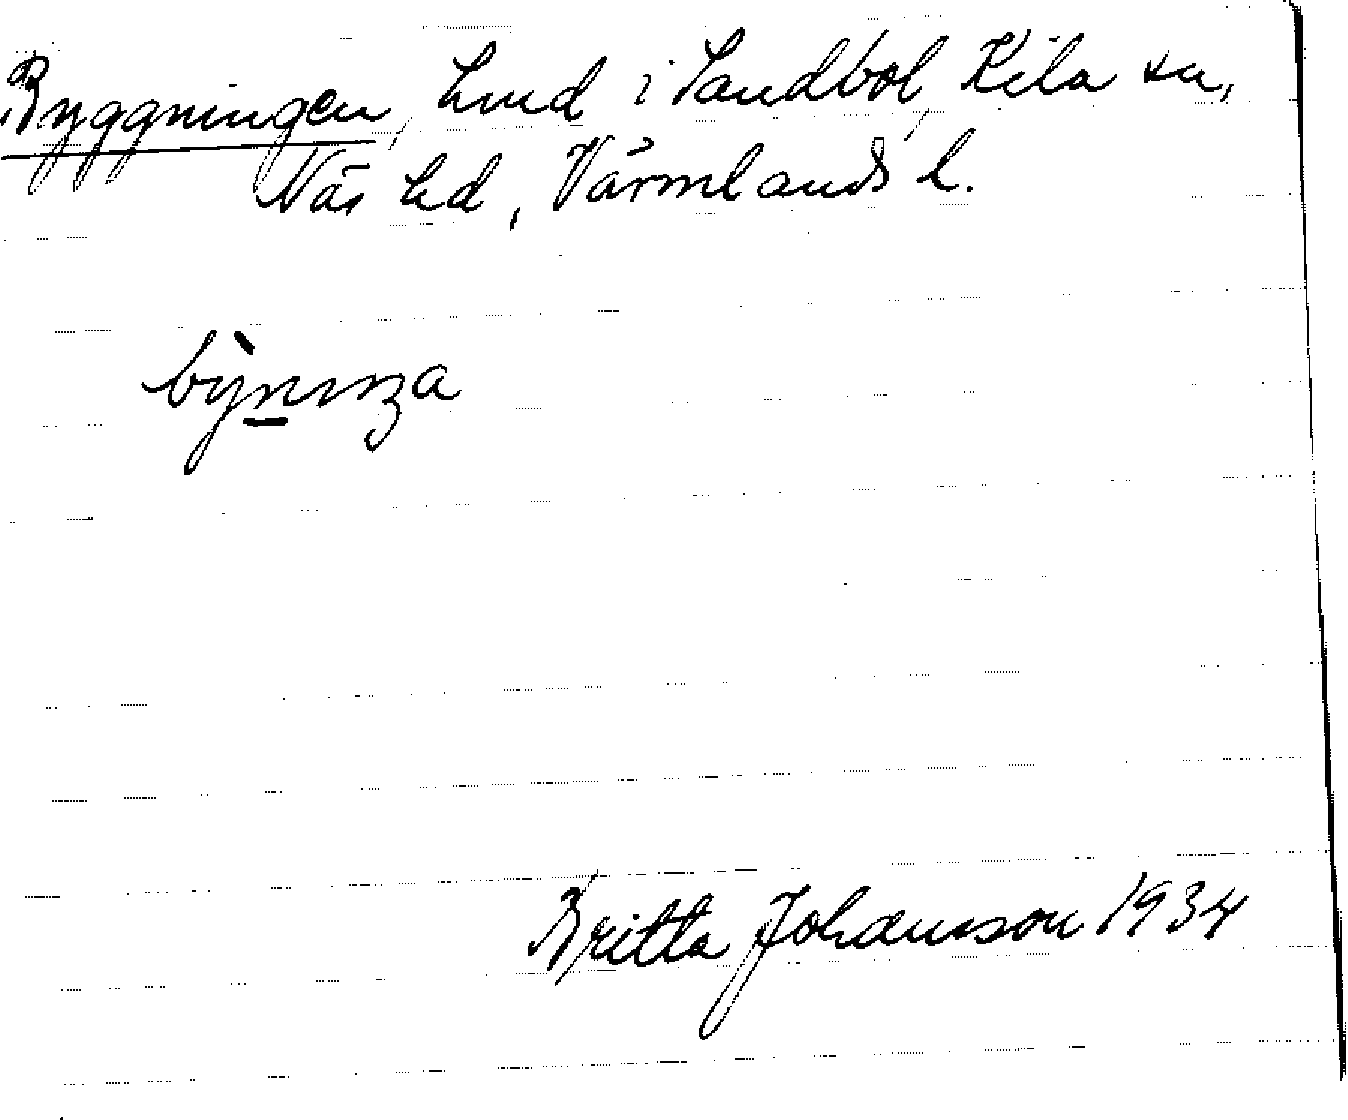 Byggningen, hmd i Sandbol, Kila sn,
Näs hd, Värmlands l.
Britta Johansson 1934